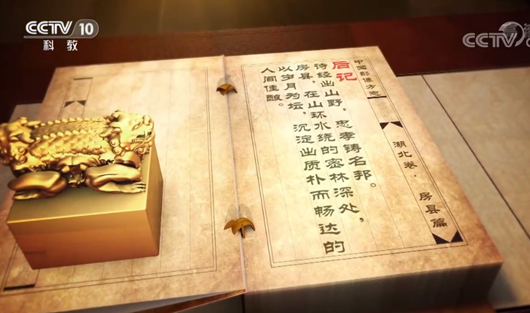 CCTV 10
科教
CCTV
中国影像方志
湖北卷·房县篇
后记
诗经出山野，忠孝铸名邦。
房县，在山环水绕的密林深处，
以岁月为坛，沉淀出质朴而畅达的
人间佳酿。